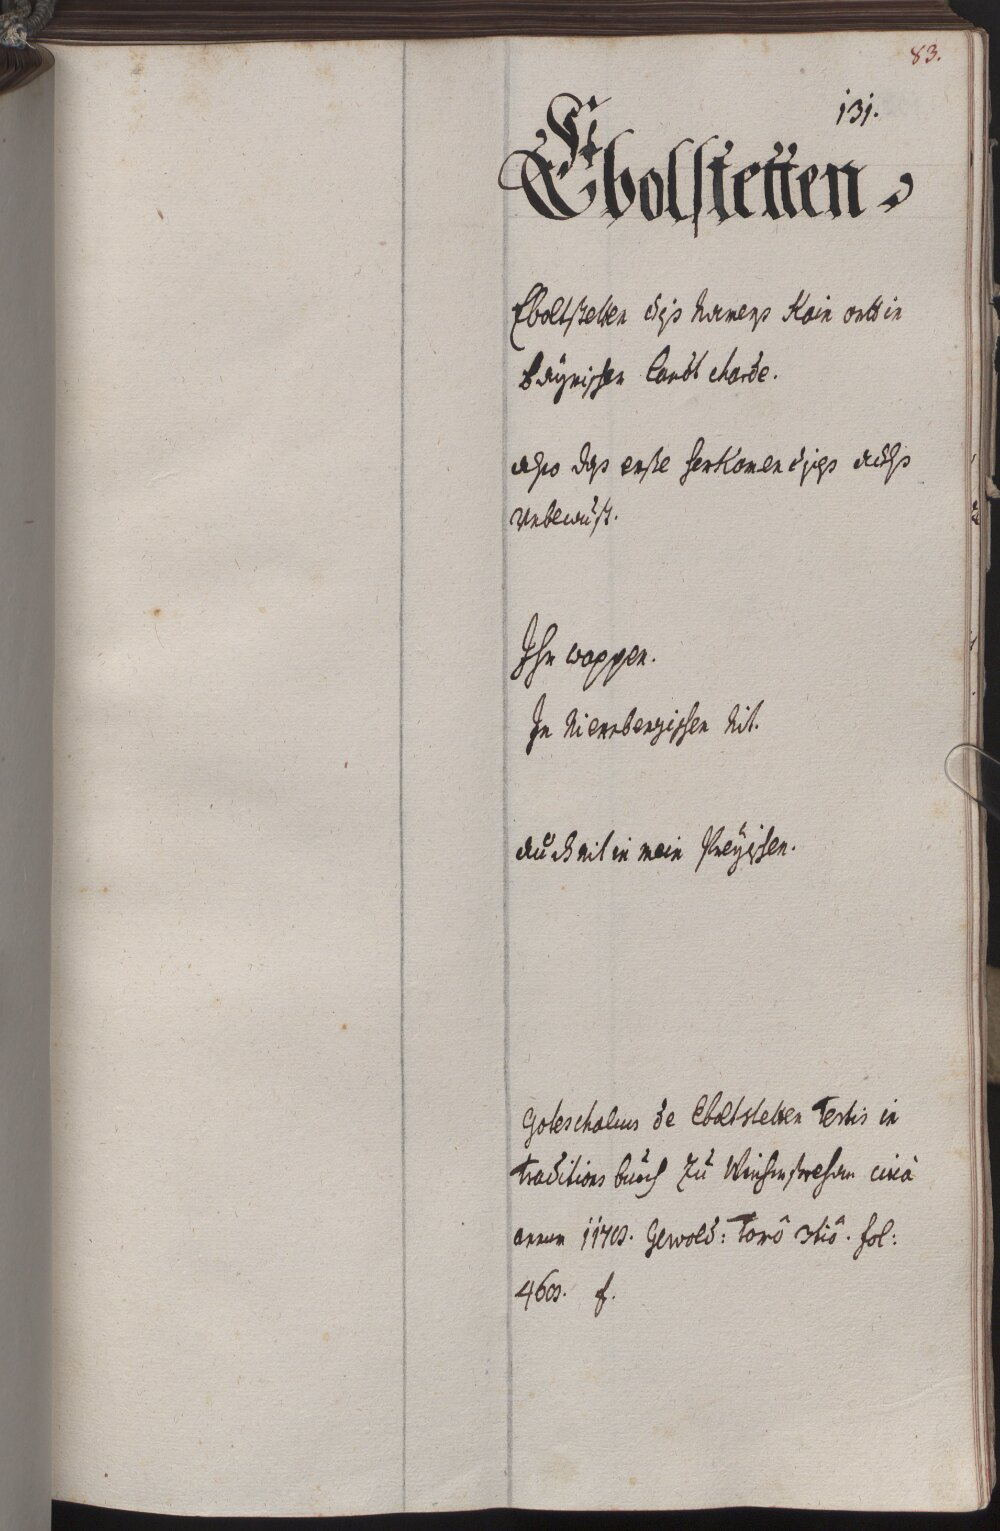 83.
131.
Ebolstetten
Eboltstetten diss Namens Kain ortt in
bayrischer Landt charde.
also das erste herKomen diss alhs
Unbewust.
Ihr wappen.
In Niernbergischen Nit.
auch nit in mein Preysischen.
Goteschalcus de Eboltstetten Testis in
Traditions buech Zu Weichenstephan circà
annum 1170. Gewold: Tomô 3tiô. fol:
460. f.